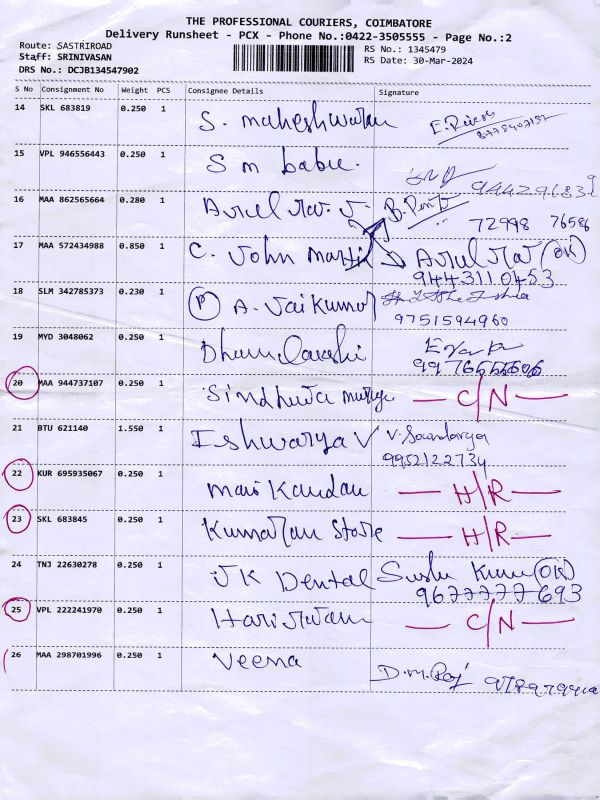 THE PROFESSIONAL COURIERS, COIMBATORE
Delivery Runsheet - PCX - Phone No.:0422-3505555 - Page No.:2
Route: SASTRIROAD RS No.: 1345479
Staff: SRINIVASAN RS Date: 30-Mar-2024
DRS No.: DCJB134547902
S No Consignment No Weight PCS Consignee Details Signature
14 SKL 683819 0.250 1 S. maheshwaran
15 VPL 946556443 0.250 1 S m babu.
16 MAA 862565664 0.280 1 Arul raj. J. 72998 76586
17 MAA 572434988 0.850 1 C. John Martin Arul raj (OK)
9443110453
18 SLM 342785373 0.230 1 (P) A. Jai Kumar
9751594960
19 MYD 3048062 0.250 1
20 MAA 944737107 0.250 1 Sindhuja C/N
21 BTU 621140 1.550 1 Ishwarya V V. Soundarya
9952122734
22 KUR 695935067 0.250 1 Mari Kandan H/R
23 SKL 683845 0.250 1 Kumaran Store H/R
24 TNJ 22630278 0.250 1 JK Dental (OK)
9677777693
25 VPL 222241970 0.250 1 C/N
26 MAA 298701996 0.250 1 Veena D.M. Raj